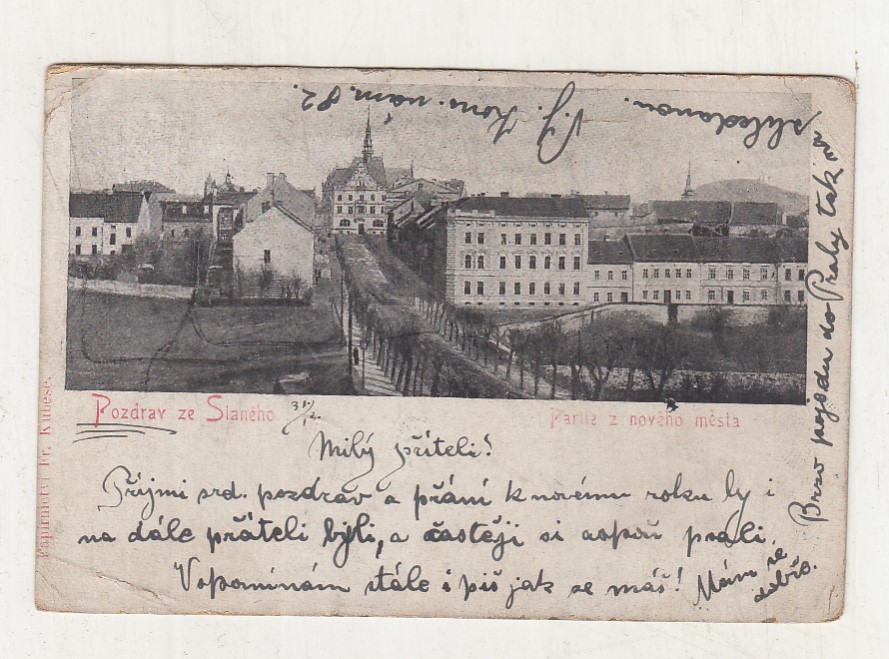 Pozdrav ze Slaného
31./12.
Partie z nového města
Milý příteli!
Přijmi srd. pozdrav a přání k novému roku by i
na dále přáteli byli, a častěji si aspoň psali.
Vzpomínám stále i piš jak se máš! Mám se
dobře.
Brzo pojedu do Prahy tak na
shledanou.
nám. 82.
Papírnictví Fr. Kubeše.